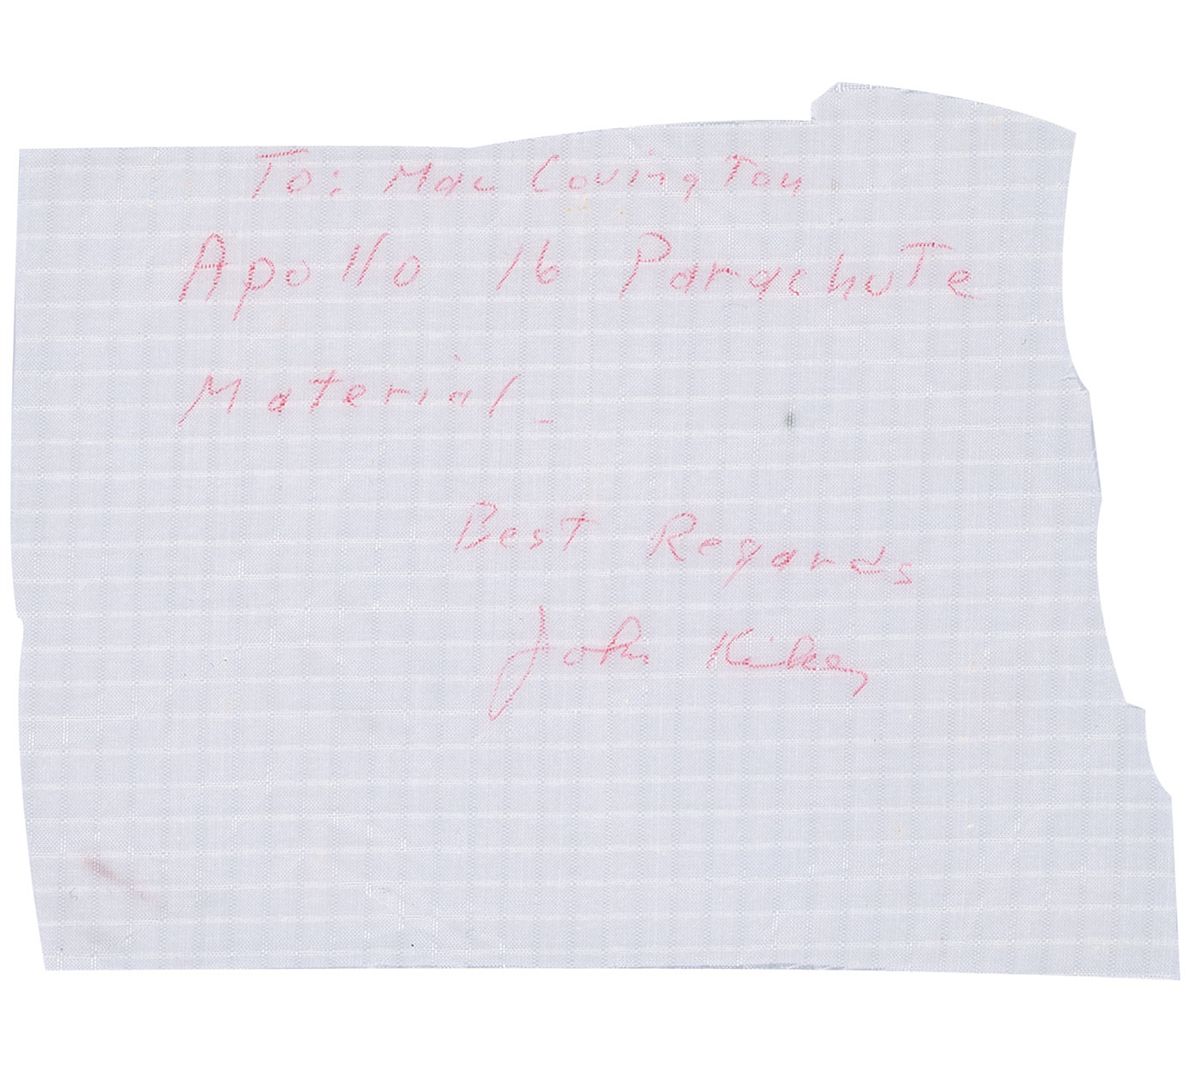 To: Mac Covington
Apollo 16 Parachute
Material_
Best Regards
John Kiker